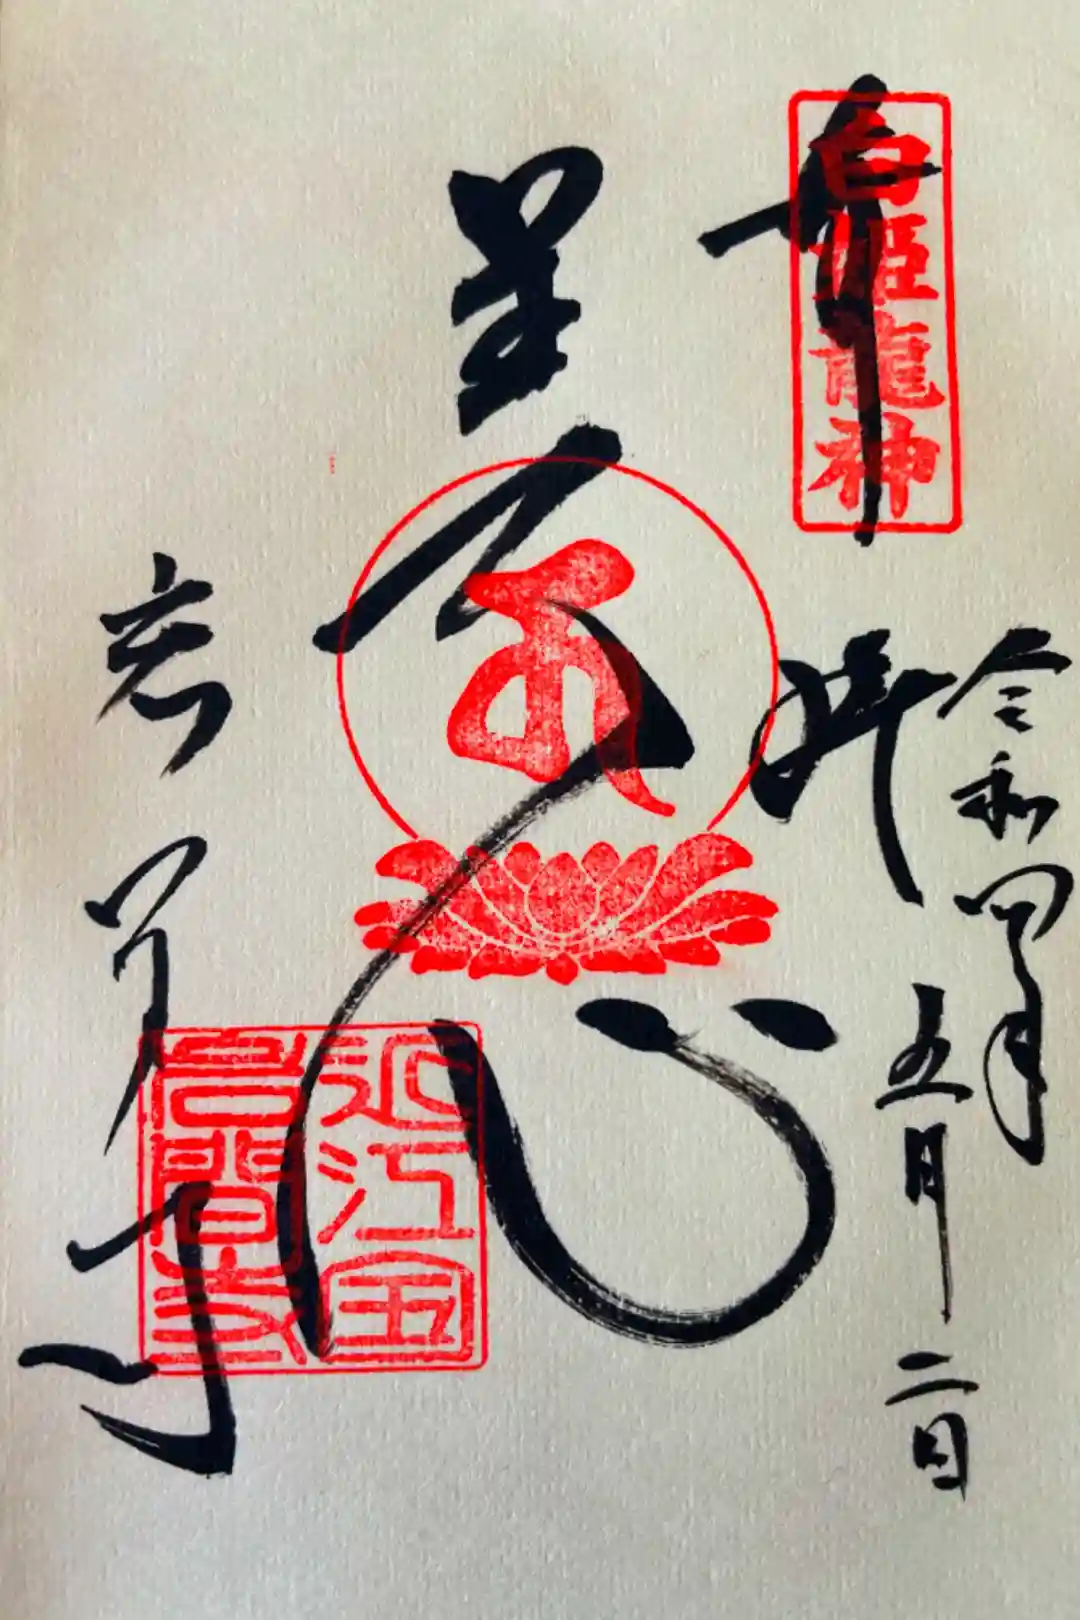 白姫龍神
奉拝
令和四年五月二日
心
岩間寺
近江国
岩間寺